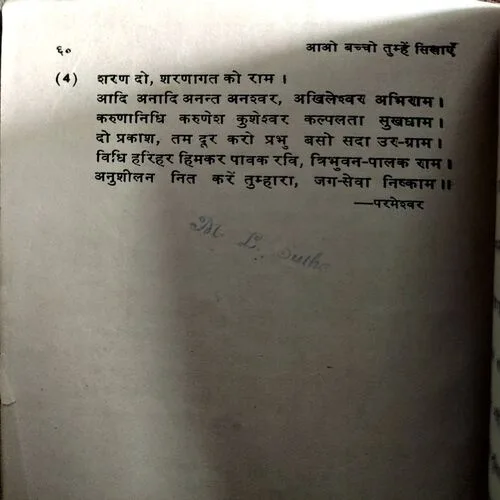 ६० आओ बच्चो तुम्हें सिखाएँ
(4) शरण दो, शरणागत को राम ।
आदि अनादि अनन्त अनश्वर, अखिलेश्वर अभिराम ।
करुणानिधि करुणेश कुशेश्वर कल्पलता सुखधाम ।
दो प्रकाश, तम दूर करो प्रभु बसो सदा उर-ग्राम ।
विधि हरिहर हिमकर पावक रवि, त्रिभुवन-पालक राम ।
अनुशीलन नित करें तुम्हारा, जग-सेवा निष्काम ॥
—परमेश्वर
M. L.